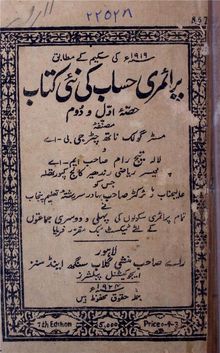 ۲۲۵۲۸
857
۱۹۱۹ء کی سکیم کے مطابق
پرائمری حساب کی نئی کتاب
حصۂ اول و دوم
مصنفہ
مسٹر گولک ناتھ چٹرجی بی-اے
و
لالہ تیج رام صاحب ایم-اے
پروفیسر ریاضی رندھیر کالج کپورتھلہ
جس کو
عالیجناب ڈائرکٹر صاحب بہادر سررشتہ تعلیم پنجاب
نے
تمام پرائمری سکولوں کی پہلی و دوسری جماعتوں
کے لئے ٹیکسٹ بک مقرر فرمایا
لاہور
رائے صاحب منشی گلاب سنگھ اینڈ سنز
ایجوکیشنل پبلشرز
۱۹۲۴ء
جملہ حقوق محفوظ ہیں
7th Edition 5,000 Price 0-4-3